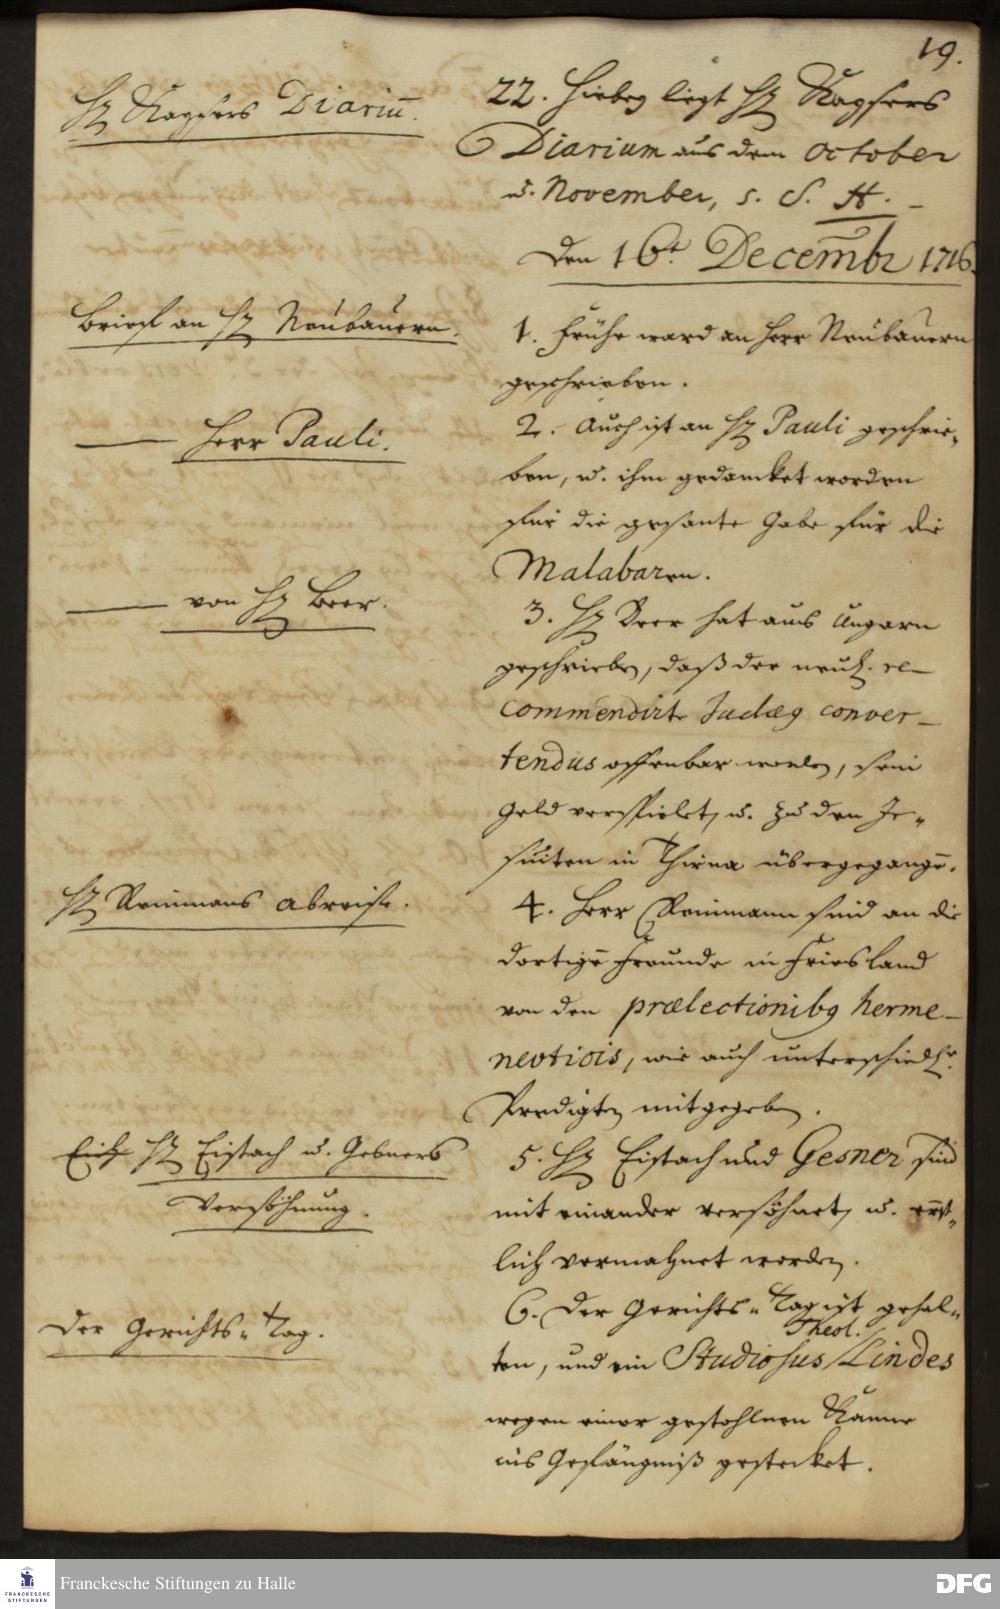 19.
H. Kaysers Diariū.
22. Hirbey liegt H. Kaysers
Diarium aus dem October
u. November, s. S. H. –
Den 16t. Decembr 1716.
Brieff an H. Neubauern.
1. Frühe ward an Herr Neubauern
geschrieben.
Herr Pauli.
2. Auch ist an H. Pauli geschrie-
ben, u. ihm gedancket worden
für die gesante Gabe für die
Malabaren.
von H. Beer.
3. H. Beer hat aus Ungarn
geschrieben, daß der neul. re-
commendirte Judæq conver-
tendus offenbar worden, sein
Geld verspielet, u. zu den Je-
suiten in Thirna übergegangē.
H. Reinmans Abreise.
4. Herr Reinmann sind an die
dortigē Freunde in Friesland
von den prælectionibq herme-
nevticis, wie auch unterschiedl.
Predigten mitgegeben.
H. Eistach u. Gesners
Versöhnung.
5. H. Eistach und Gesner sind
mit einander versöhnet, u. ernst-
lich vermahnet worden.
Der Gerichts-Tag.
6. Der Gerichts-Tag ist gehal-
ten, und ein Studiosus Theol. Lindes
wegen einer gestohlnen Kanne
ins Gefängniß gestecket.
Franckesche Stiftungen zu Halle
FRANCKESCHE
STIFTUNGEN
DFG